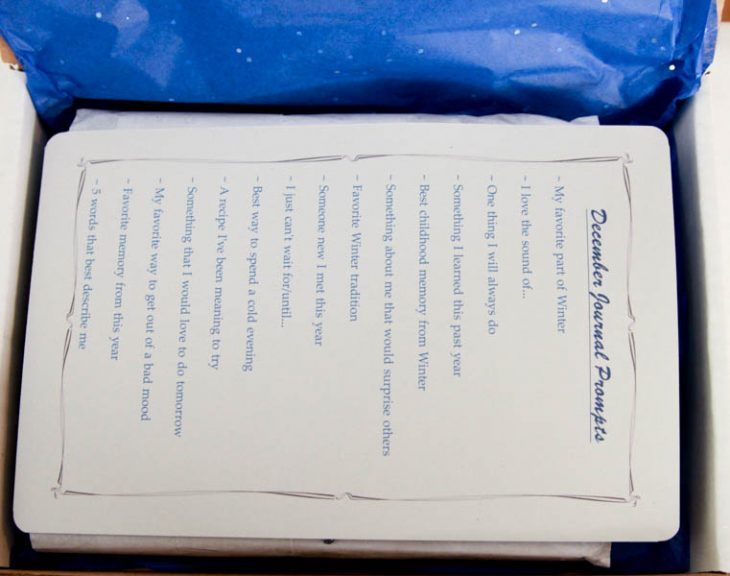 December Journal Prompts
~ My favorite part of Winter
~ I love the sound of...
~ One thing I will always do
~ Something I learned this past year
~ Best childhood memory from Winter
~ Something about me that would surprise others
~ Favorite Winter tradition
~ Someone new I met this year
~ I just can't wait for/until...
~ Best way to spend a cold evening
~ A recipe I've been meaning to try
~ Something that I would love to do tomorrow
~ My favorite way to get out of a bad mood
~ Favorite memory from this year
~ 5 words that best describe me